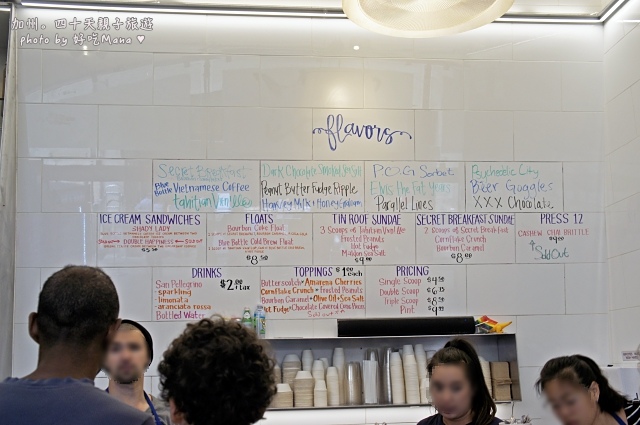 加州。四十天親子旅遊
photo by 好吃Mana ♥
flavors
Secret Breakfast
Blue Bottle Vietnamese Coffee
Tahitian Vanilla
Dark Chocolate Smoked Sea Salt
Peanut Butter Fudge Ripple
Harvey Milk & Honey Graham
P.O.G. Sorbet
Elvis the Fat Years
Parallel Lives
Psychotic City
Beer Goggles
XXX Chocolate
ICE CREAM SANDWICHES
SHADY LADY
DOUBLE HAPPINESS
FLOATS
Bourbon Coke Float
Blue Bottle Cold Brew Float
$8.50
TIN ROOF SUNDAE
3 Scoops of Tahitian Vanilla
Frosted Peanuts
Hot Fudge
Maldon Sea Salt
SECRET BREAKFAST SUNDAE
2 Scoops of Secret Breakfast
Cornflake Crunch
Bourbon Caramel
PRESS 12
CASHEW CHAI BOTTLE
Sold Out
DRINKS
San Pellegrino
- sparkling
- limonata
- aranciata rossa
Bottled Water
TOPPINGS $1.00 Each
Butterscotch • Amarena Cherries
Cornflake Crunch • Frosted Peanuts
Bourbon Caramel • Olive Oil + Sea Salt
Hot Fudge • Chocolate Covered Cone Pieces
PRICING
Single Scoop
Double Scoop
Triple Scoop
Pint